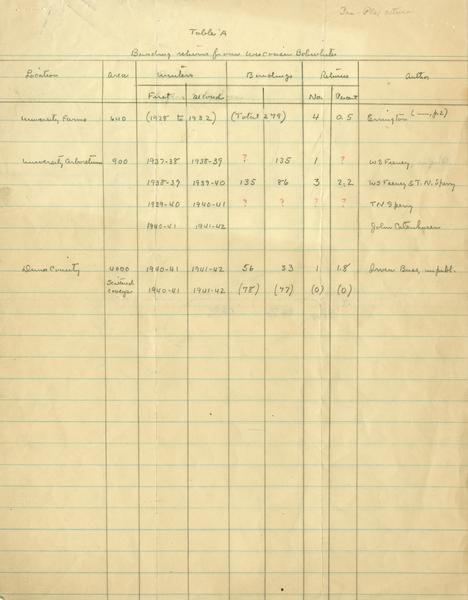 Table A
Banding returns from Wisconsin Bobwhite
Location Area Winters Bandings Returns Author
First Second No. Percent
University Farms 600 (1928 to 1932) (Total 279) 4 0.5 Errington (—, p2)
University Arboretum 900 1937-38 1938-39 ? 135 1 ? WS Feeney
1938-39 1939-40 135 86 3 2.2 WS Feeney & T. N. Sperry
1939-40 1940-41 ? ? ? ? TN Sperry
1940-41 1941-42 John Catenhusen
Dane County 4000 1940-41 1941-42 56 33 1 1.8 Irven Buss, unpubl.
coveys 1940-41 1941-42 (78) (77) (0) (0)